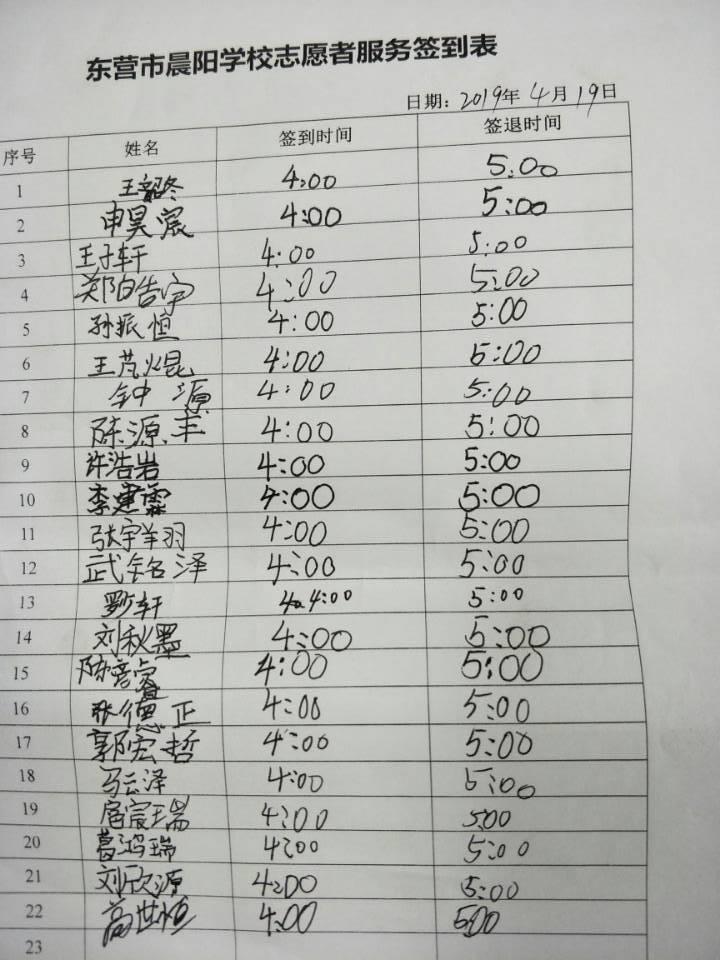 东营市晨阳学校志愿者服务签到表
日期：2019年4月19日
序号 姓名 签到时间 签退时间
1 王韶冬 4:00 5:00
2 申昊宸 4:00 5:00
3 王子轩 4:00 5:00
4 郑皓宇 4:00 5:00
5 孙振恒 4:00 5:00
6 王芃焜 4:00 5:00
7 钟源 4:00 5:00
8 陈源丰 4:00 5:00
9 许浩岩 4:00 5:00
10 李建霖 4:00 5:00
11 张宇翔 4:00 5:00
12 武铭泽 4:00 5:00
13 轩 4:00 5:00
14 刘秋墨 4:00 5:00
15 陈彦睿 4:00 5:00
16 张德正 4:00 5:00
17 郭宏哲 4:00 5:00
18 马云泽 4:00 5:00
19 宸瑞 4:00 500
20 葛鸿瑞 4:00 5:00
21 刘欣源 4:00 5:00
22 高世恒 4:00 5:00
23